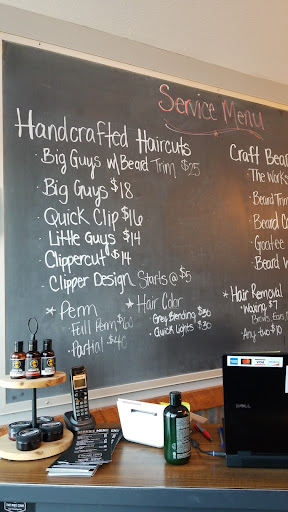 Service Menu
Handcrafted Haircuts
· Big Guys w/Beard Trim $25
· Big Guys $18
· Quick Clip $16
· Little Guys $14
· Clippercut $14
· Clipper Design Starts @ $5
* Perm
· Full Perm $60
· Partial $40
* Hair Color
· Grey Blending $30
· Quick Lights $30
Craft Bear
· The Works
· Beard Trim
· Beard Co
· Goatee
· Beard W
* Hair Removal
· Waxing $7
Brows, Ears,
· Any two $10
DELL